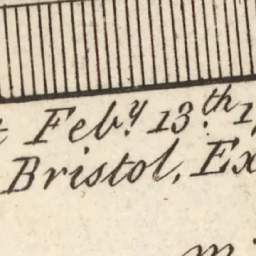 Feb.y 13.th
Bristol, Ex